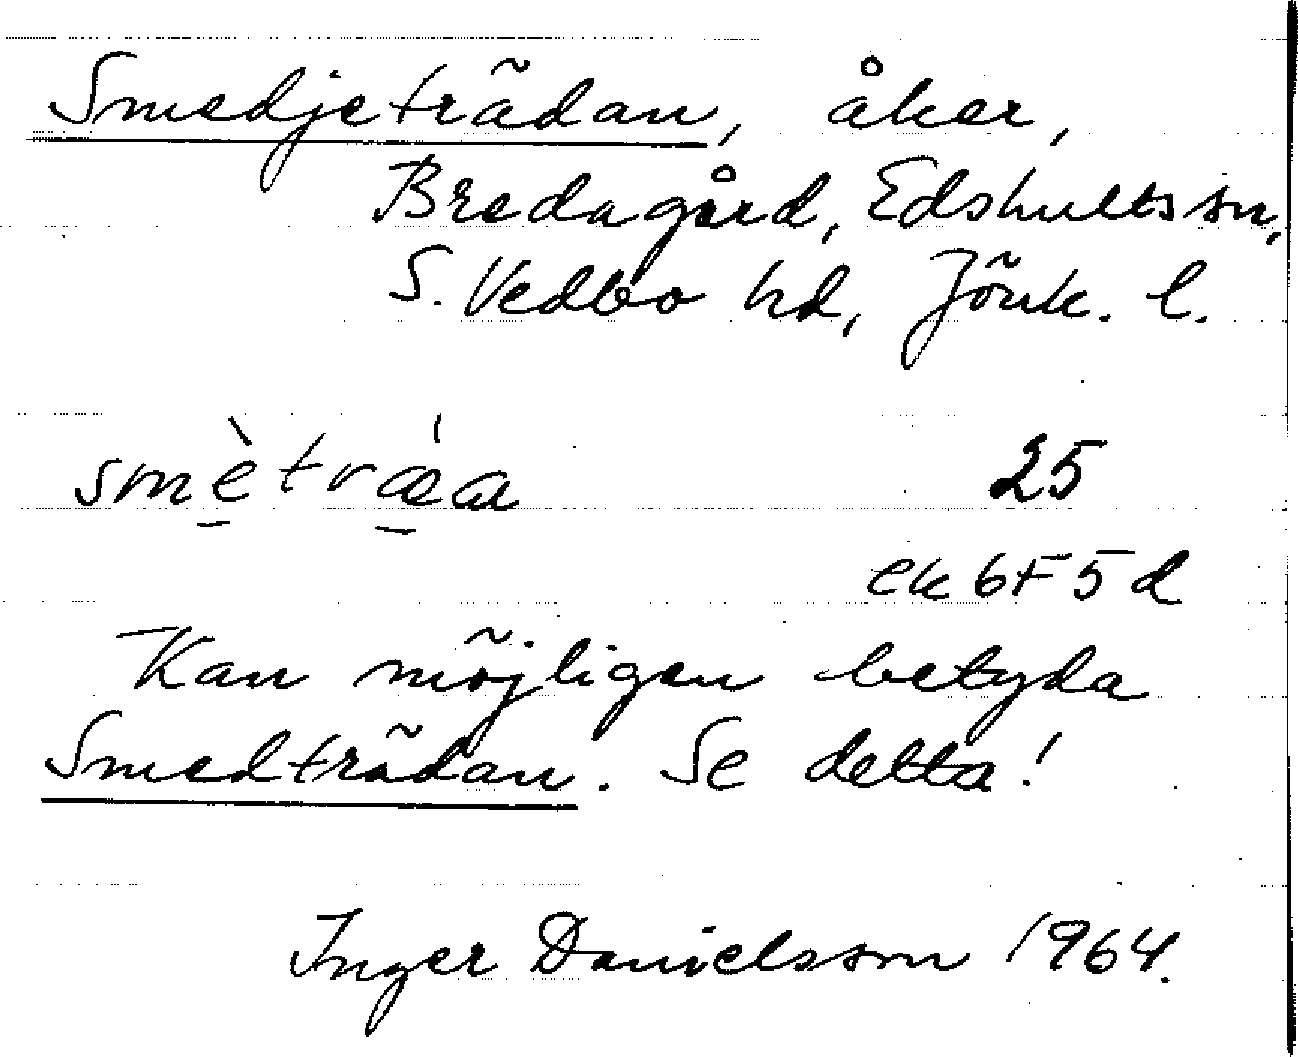 Smedjeträdan, åker,
Bredagård, Edshults sn,
S. Vedbo hd, Jönk. l.
smètrǽa 25
ek 6F5d
Kan möjligen betyda
Smedträdan. Se detta!
Inger Danielsson 1964.